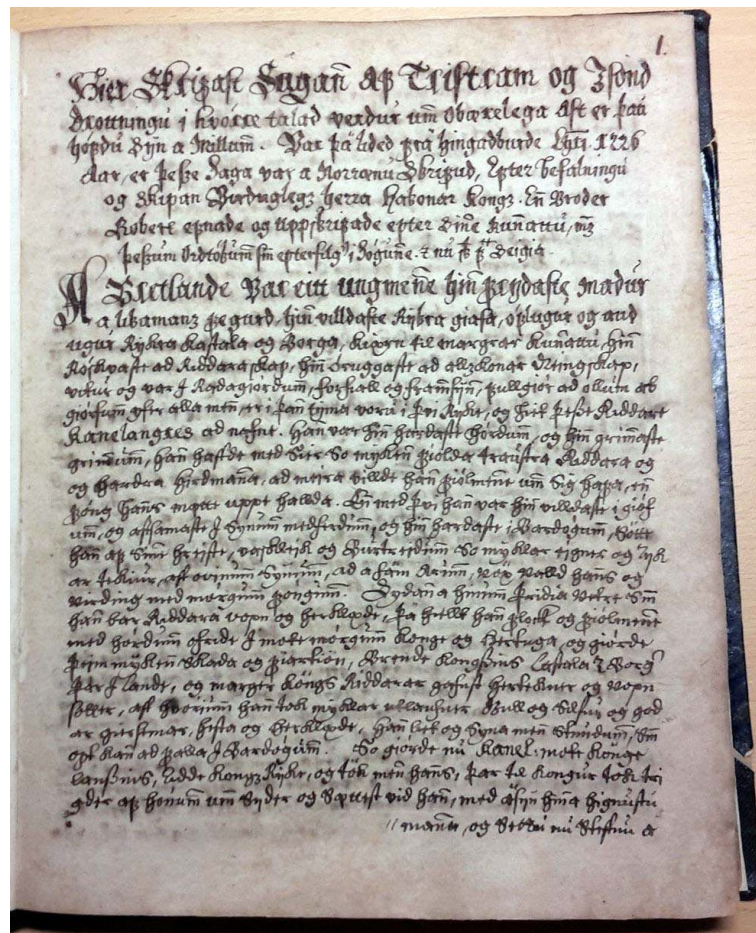 1.
Hier Skrifast Sagan̄ af Tristram og Isönd
Drottningu i hvörre talad verdur um̄ Obærelega Ást er þau
höfdu Sijn a Millum̄. Var þá lided frá hingadburde Christi 1226
Aar, er þesse Saga var a Norrænu Skrifud, Epter Befalningu
og Skipan Virduglegs herra Hakonar Kongs. En̄ Broder
Robert efnade og uppskrifade epter Sin̄e Kun̄attu, m3
þessum Ordtökum̄ sm̄ epterfilg' i Sögun̄e. & nu sk fra Seigia.
A Bretlande Var eitt ungmen̄e hin̄ frijdaste madur
a likamans fegurd, hin̄ villdaste Rijkra giafa, oflugur og aud
ugur Rijkra Kastala og Borga, Kiæn til margrar Kun̄attu, hin̄
Röskvaste ad Riddaraskap, hin̄ Öruggaste ad allzkonar Dreingskap,
vitur og var I Radagiördum̄, forsiall og framsijn̄, fullgiör ad ollum at
giörfum̄ yfer alla men̄, er i þan̄ tijma voru i þvi Rijke, og hiet þesse Riddare
Kanelangres ad nafne. han̄ var hin̄ hardaste hördum̄, og hin̄ grim̄aste
grim̄um̄, han̄ hafde med Sier So mykin̄ fiölda traustra Riddara og
og hardra hirdman̄a, ad meira villde han̄ fiölmen̄e um̄ Sig hafa, en̄
föng hans mætte uppe hallda. En̄ med þvi han̄ var hin̄ villdaste i giöf
um̄, og astsamaste I Synum̄ medferdum̄, og hin̄ hardaste i Bardögum̄, Sötte
han̄ af Sin̄e hreiste, vaskleik og Burtreidum̄ So myklar eigner og Rijk
ar tekiur, aff ovinum̄ Synum̄, ad a fám Arum̄, vöx valld hans og
virding med mörgum̄ föngum̄. Sydan a hinum̄ þridia vetre Sm̄
han̄ bar Riddara vopn og herklæde, þa hellt han̄ flock og fiölmen̄e
med hördum̄ ofride I mote mörgum̄ Konge og Hertuga, og giörde
þeim mykin̄ Skada og fiartion, Brende Kongsins Castala & Borg
þar I lande, og marger Köngs Riddarar gafust herteknir og vopn
sotter, aff hvörium̄ han̄ tok myklar utlausner Gull og Silfur og god
ar giersemar, hesta og herklæde, han̄ liet og Syna men̄ Stundum̄, Sm̄
opt kan̄ ad falla I Bardögum̄. So giorde nu Kanel: mote Könge
landsins, Eidde Kongs Rijke, og tök men̄ hans, þar til Kongur tok tri
gder af honum̄ um̄ Syder og Sættist vid han̄, med asijn hin̄a hignustu
man̄a, og Settu nu Stefnu a